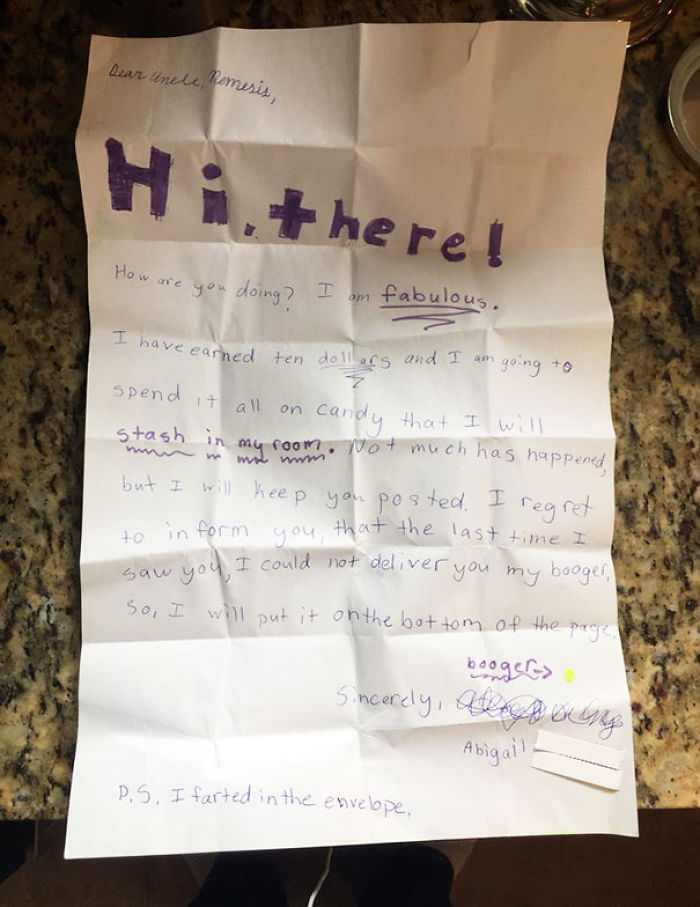 Dear Uncle, Nemesis,
Hi, there!
How are you doing? I am fabulous.
I have earned ten dollars and I am going to
spend it all on candy that I will
stash in my room. Not much has happened,
but I will keep you posted. I regret
to inform you, that the last time I
saw you, I could not deliver you my booger,
So, I will put it on the bottom of the page.
booger→
Sincerely,
Abigail
P.S. I farted in the envelope.